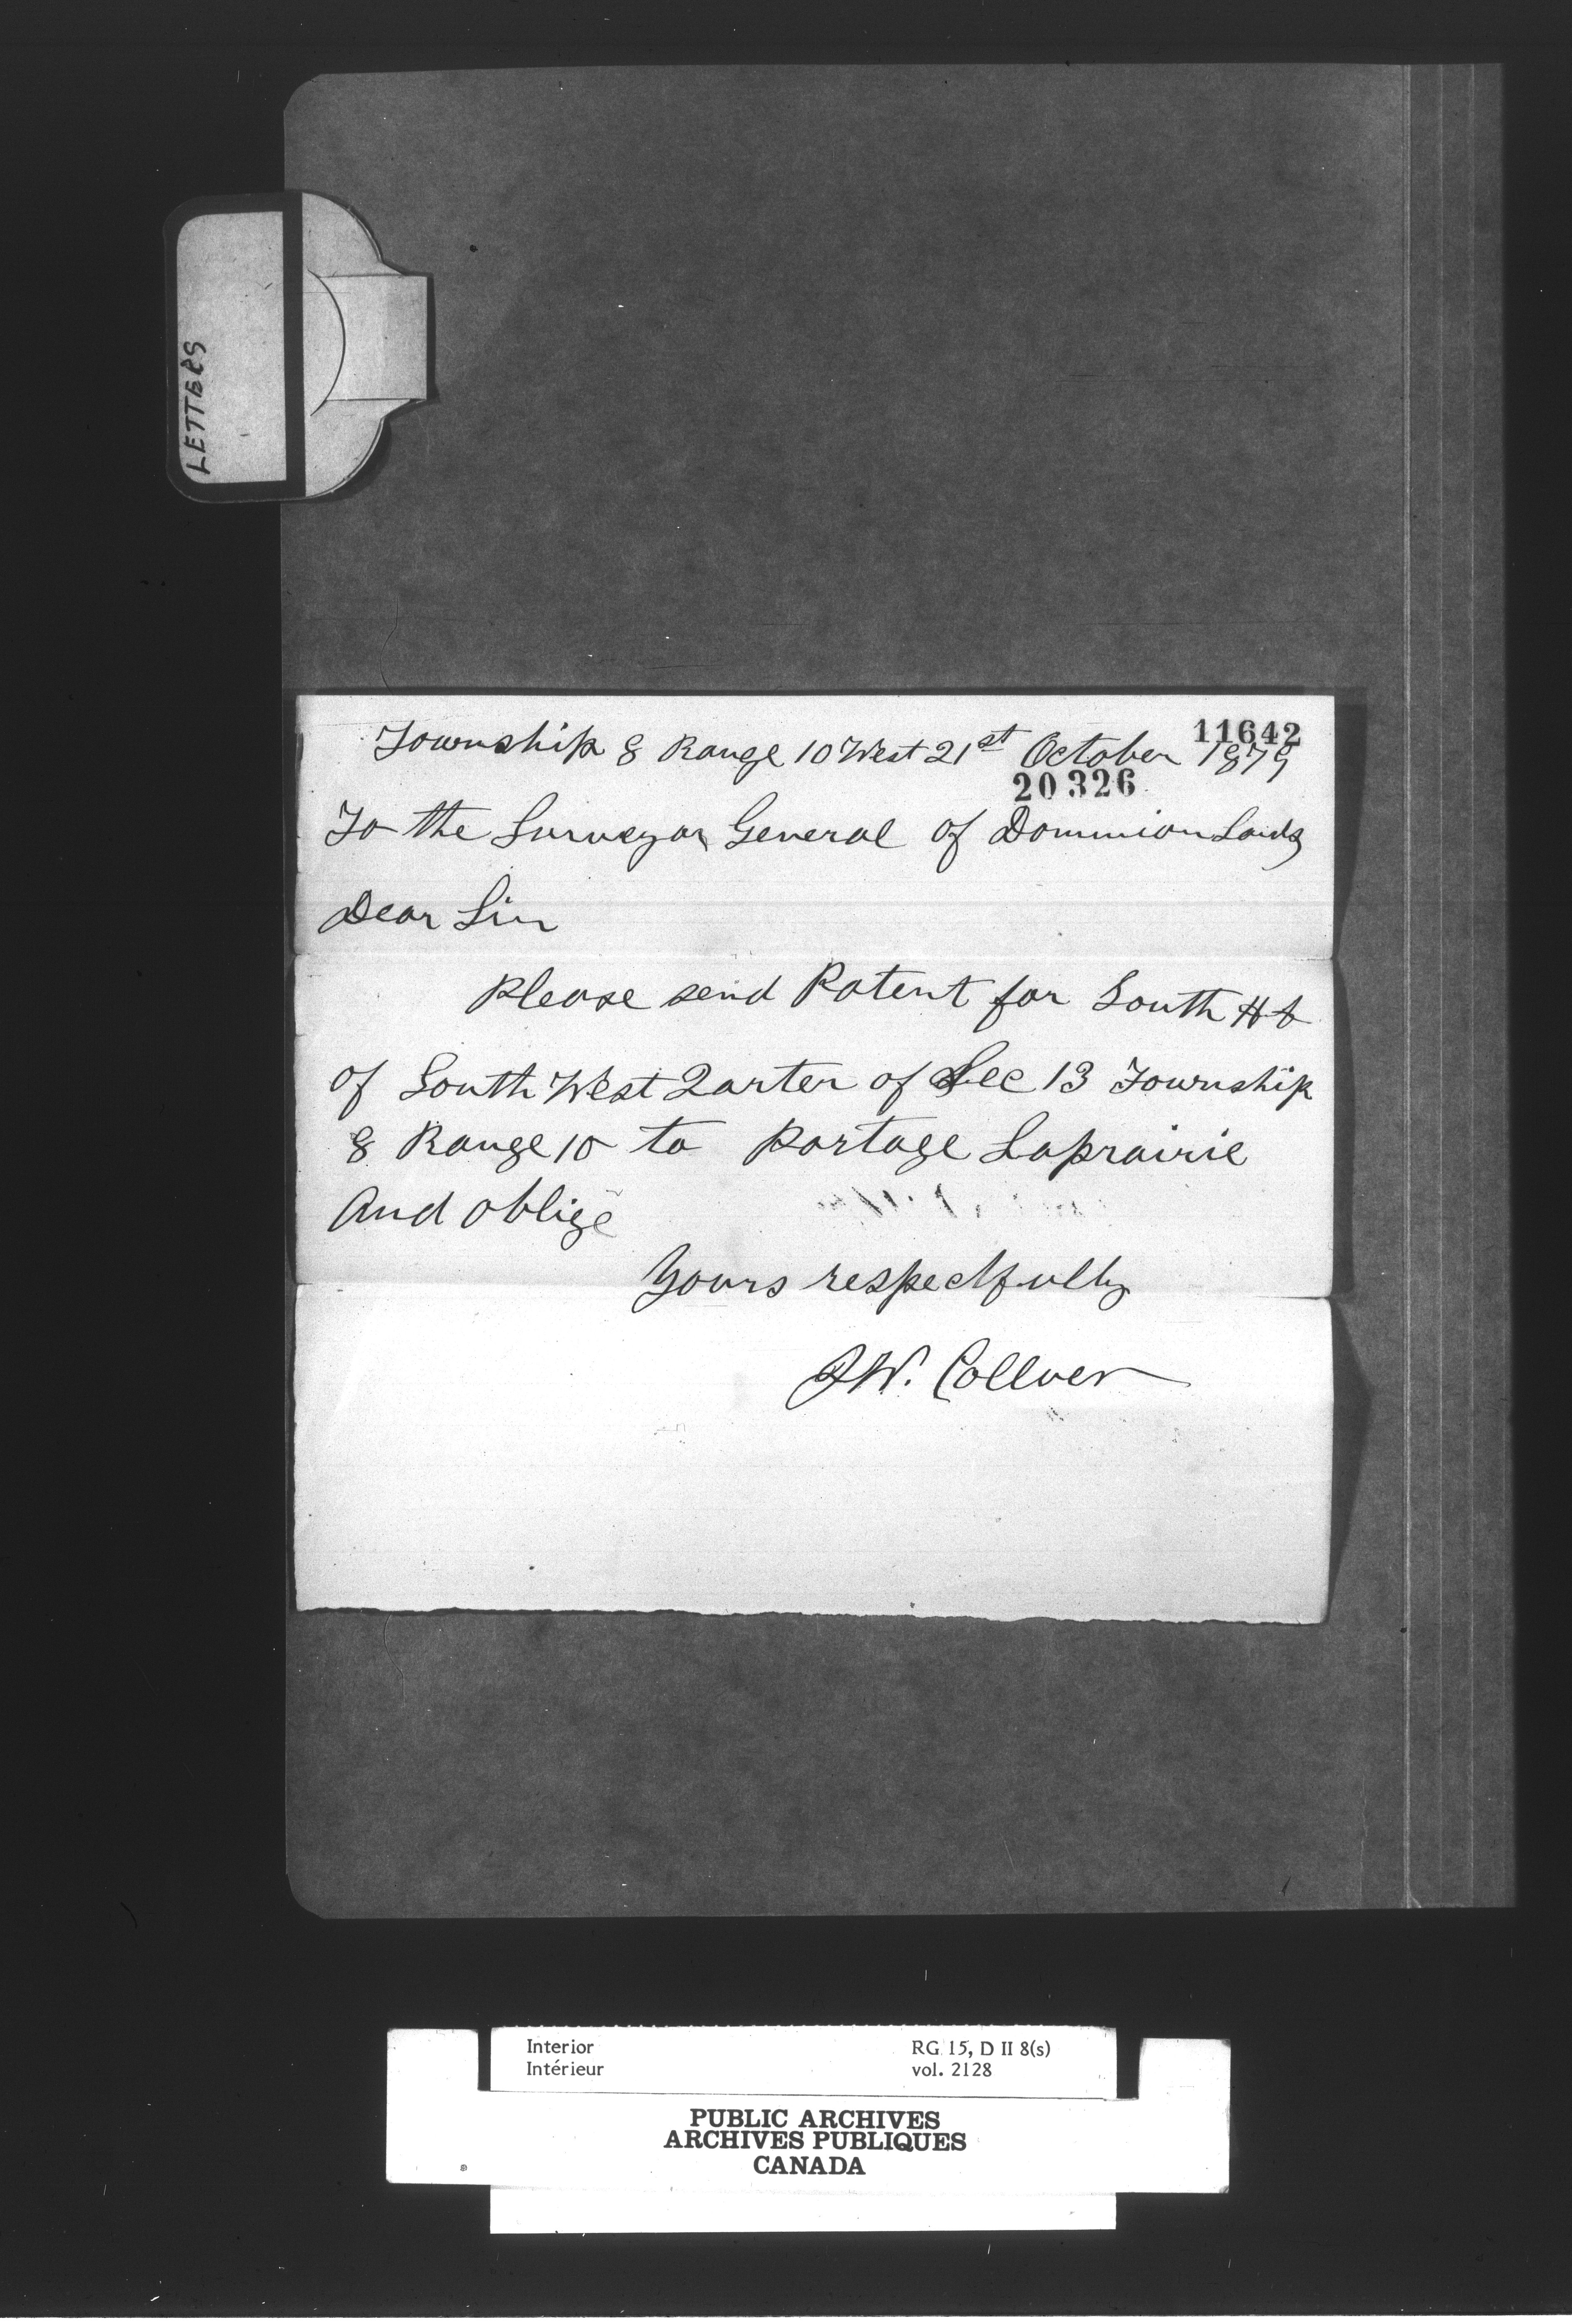 LETTERS
11642
Township 8 Range 10 West 21st October 1879
20326
To the Surveyor General of Dominion Lands
Dear Sir
Please send Patent for South
of South West Qarter of Sec 13 Township
8 Range 10 to Portage Laprairie
And oblige
Yours respectfully
J W. Collver
Interior
Intérieur
RG 15, D II 8(s)
vol. 2128
PUBLIC ARCHIVES
ARCHIVES PUBLIQUES
CANADA